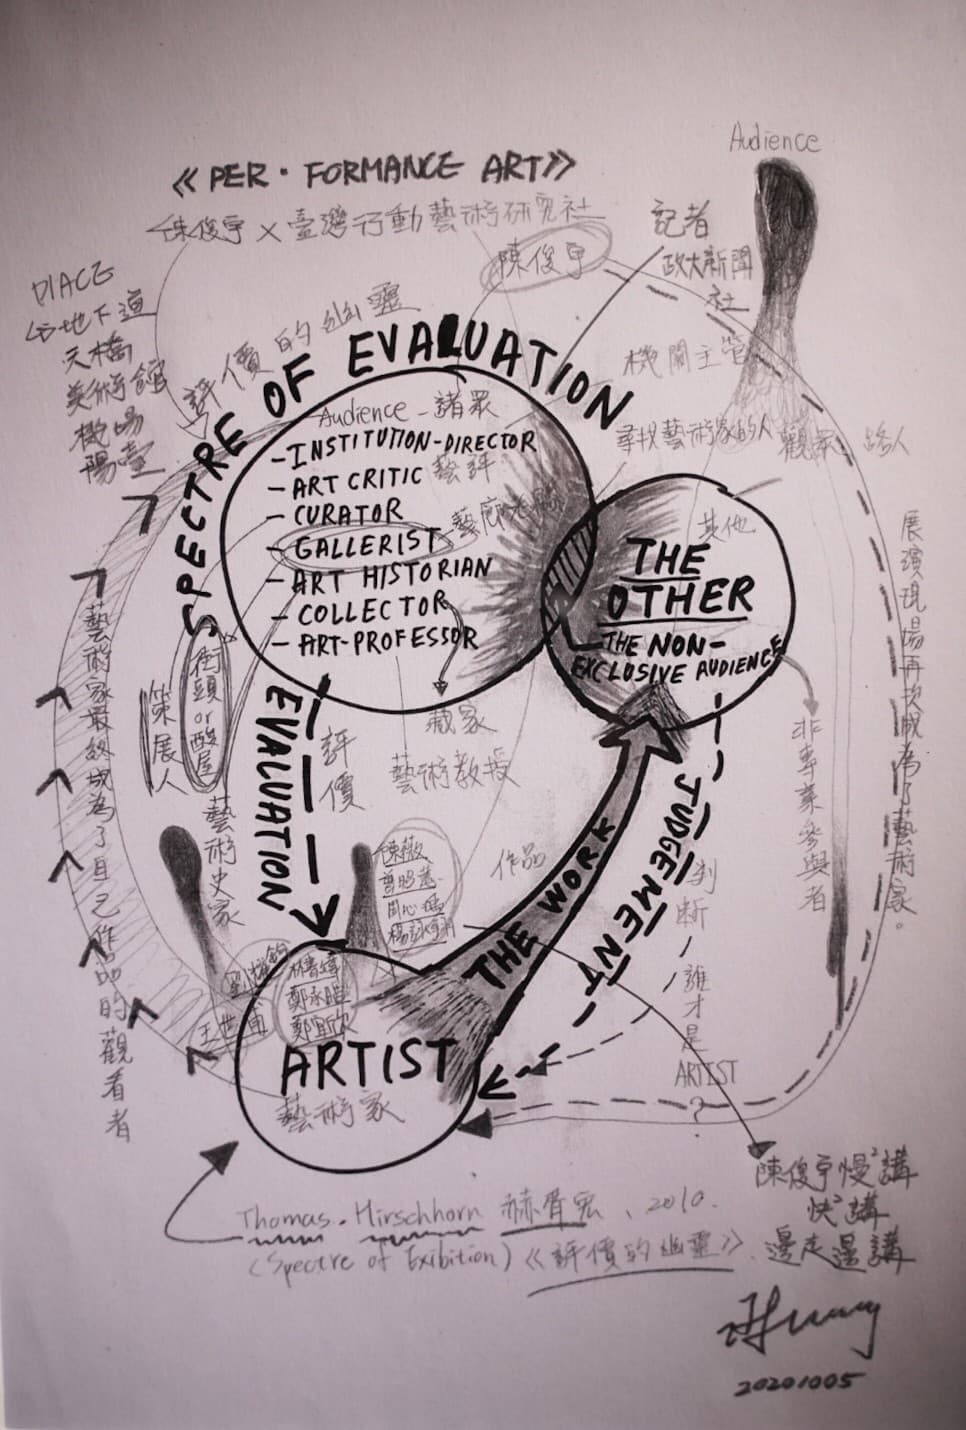 Audience
《PER·FORMANCE ART》
陳俊宇×臺灣行動藝術研究社
陳俊宇
記者
政大新聞
社
PLACE
地下道
天橋
美術館
機場
陽臺
評價的幽靈
SPECTRE OF EVALUATION
機關主管
尋找藝術家的人
觀眾、路人
Audience-諸眾
-INSTITUTION-DIRECTOR
-ART CRITIC 藝評
-CURATOR
-GALLERIST
-ART HISTORIAN
-COLLECTOR
-ART-PROFESSOR
其他
THE
OTHER
-THE NON-
EXCLUSIVE AUDIENCE
展演現場再次成為了藝術家。
街頭or酸屋
策展人
藏家
藝術教授
藝術史家
EVALUATION
評價
非專業參與者
藝術家最終成為了自己作品的觀看者
作品
THE WORK
JUDGEMENT
判斷誰才是
ARTIST
?
ARTIST
藝術家
陳俊宇慢²講
快²講
邊走邊講
Thomas. Hirschhorn 赫胥宏、2010.
(Spectre of Exibition)《評價的幽靈》.
20201005